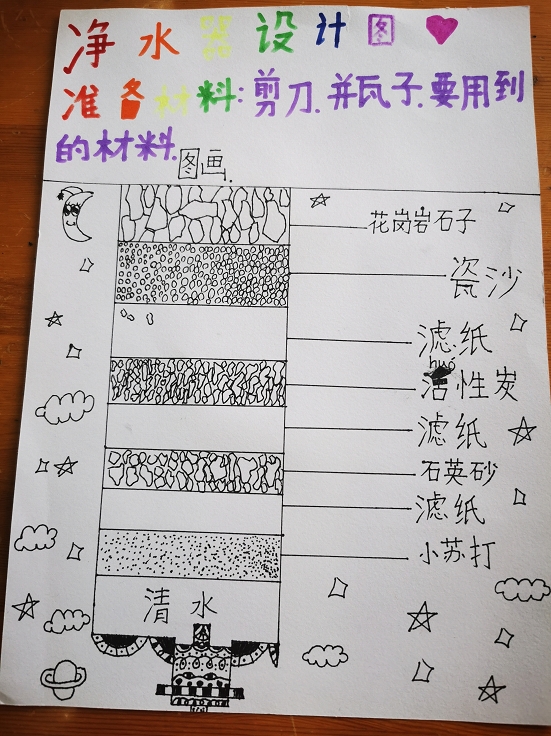 净水器设计图
准备材料:剪刀.并瓦子.要用到
的材料.
图画.
花岗岩石子
瓷沙
滤纸
huó
活性炭
滤纸
石英砂
滤纸
小苏打
清水